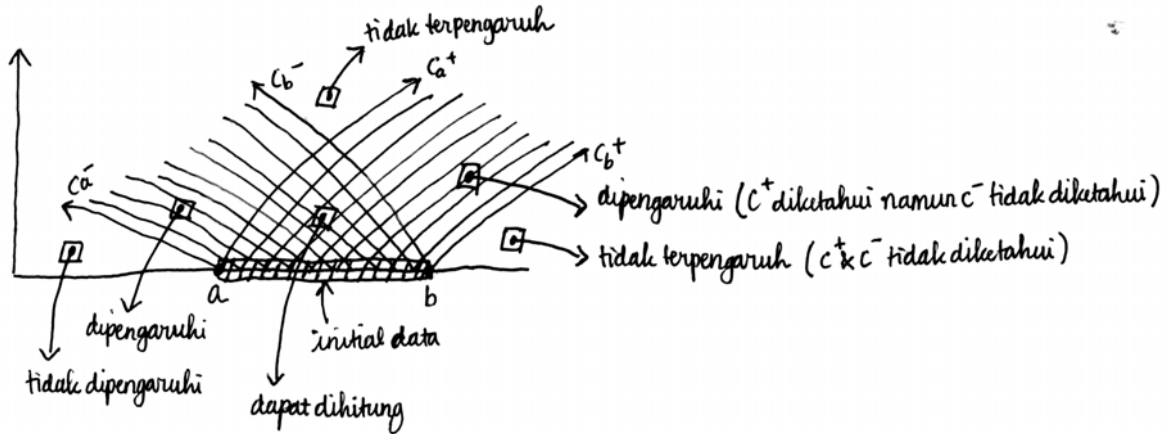 tidak terpengaruh
C_b^-
C_a^+
C_a^-
C_b^+
dipengaruhi (C^+ diketahui namun C^- tidak diketahui)
tidak terpengaruh (C^+ & C^- tidak diketahui)
a
b
dipengaruhi
initial data
tidak dipengaruhi
dapat dihitung